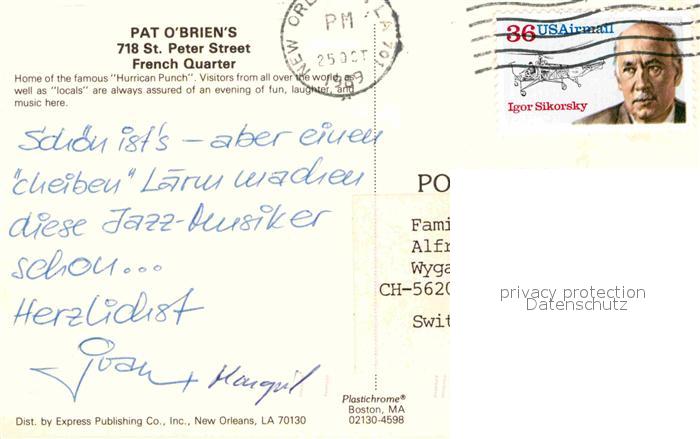 PAT O'BRIEN'S
718 St. Peter Street
French Quarter
Home of the famous "Hurrican Punch". Visitors from all over the world, as
well as "locals" are always assured of an evening of fun, laughter, and
music here.
NEW ORLEANS LA 701
PM
25 OCT
1989
36 USAirmail
Igor Sikorsky
Schön ist's – aber einen
"cheiben" Lärm machen
diese Jazz-Musiker
schon...
Herzlichst
Ivan + Margrit
PO
Fami
Alfr
Wyga
CH-5620
Swit
privacy protection
Datenschutz
Plastichrome®
Boston, MA
02130-4598
Dist. by Express Publishing Co., Inc., New Orleans, LA 70130